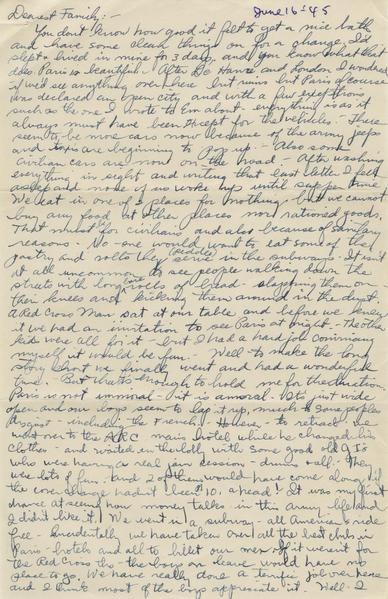 June 16-45
Dearest Family:-
You don't know how good it felt to get a nice bath
and have some clean things on for a change. I'd
slept & lived in mine for 3 days, and you know what that
does. Paris is beautiful. After Le Havre and London I wondered
if we'd see anything over here but ruins but Paris of course
was declared an open city and with a few exceptions
such as the one I wrote to Em about - everything is as it
always must have been except for the vehicles. There
seem to be more cars now because of the army jeeps
and are beginning to pop up. Also some
civilian cars are now on the road - After washing
everything in sight and writing that last letter I fell
asleep and none of us woke up until supper time.
We eat in one of 3 places for nothing but we cannot
buy any food at other places nor rationed goods.
That must be for civilians and also because of sanitary
reasons. No-one would want to eat some of the
pastry and rolls they serve in the subways. It isn't
at all uncommon to see people walking down the
streets with long rolls of bread - slapping them on
their knees and kicking them around in the dirt.
A Red Cross Man sat at our table and before we knew
it we had an invitation to see Paris at night. The other
kids were all for it - but I had a hard job convincing
myself it would be fun. Well - to make the long
story short we finally went and had a wonderful
time. But that's enough to hold me for the duration
Paris is not immoral - it is amoral. It's just wide
open and our boys seem to lap it up, much to some peoples
disgust - including the French. However - to retreat we
went over to the ARC main hotel while he changed his
clothes - and waited in the lobby with some good old GIs
who were having a real jam session - drums & all. They
were lots of fun and 2 of them would have come along if
the cover charge hadn't been $10. ahead! It was my first
chance at seeing how money talks in this army life and
I didn't like it! We went in a subway - all Americans ride
free - incidentally we have taken over all the best clubs in
Paris - hotels and all to billet our men. If it weren't for
the Red Cross tho - the boys on leave would have no
place to go. We have really done a terrific job over here
and I think most of the boys appreciate it. Well - I